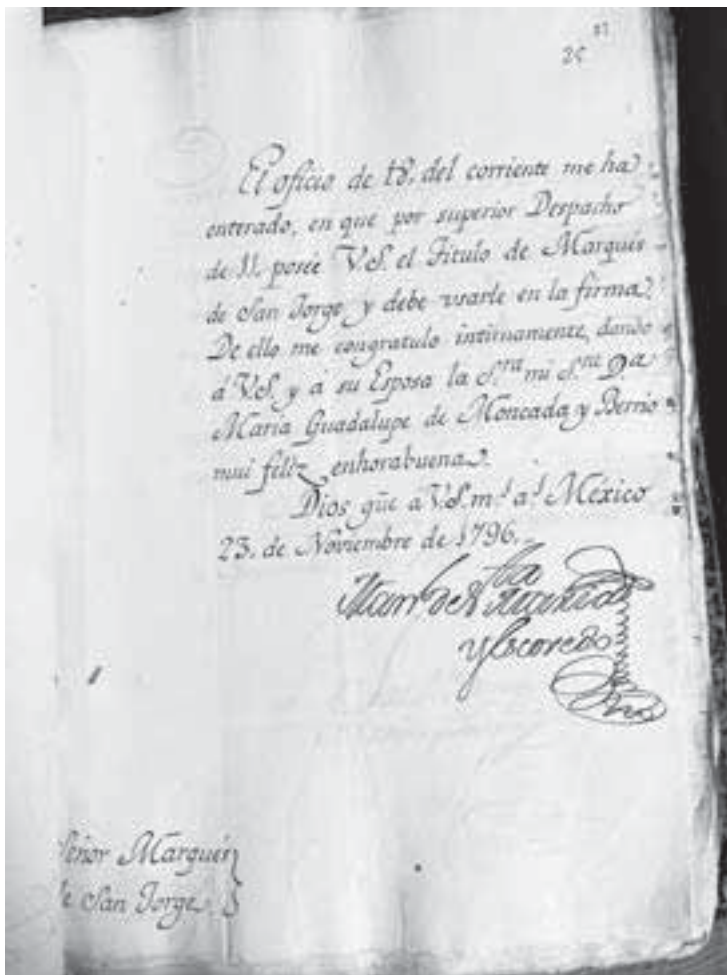 25
El oficio de 18. del corriente me ha
enterado, en que por superior Despacho
de 11. posée V.S. el Título de Marqués
de San Jorge, y debe usarle en la firma.
De ello me congratulo intimamente, dando
á V.S. y a su Esposa la S.ra mi S.ra D.a
María Guadalupe de Moncada y Berrio
mui feliz enhorabuena.
Dios gũe a V.S. m.s a.s México
23. de Noviembre de 1796.
y Escovedo
Señor Marqués
de San Jorge.